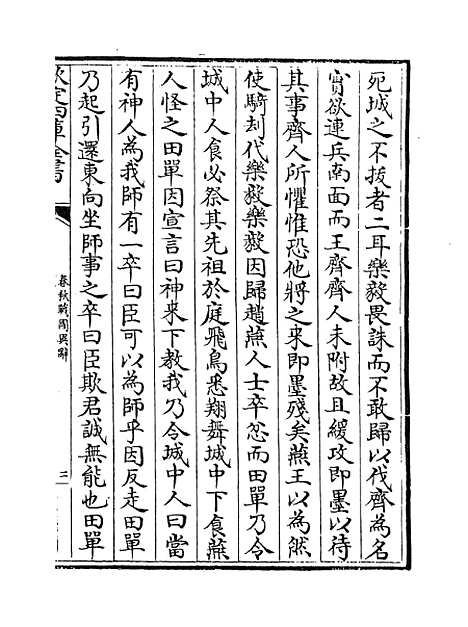 死城之不拔者二耳樂毅畏誅而不敢歸以伐齊為名
實欲連兵南面而王齊齊人未附故且緩攻即墨以待
其事齊人所懼惟恐他將之来即墨殘矣燕王以為然
使騎刦代樂毅樂毅因歸趙燕人士卒忿而田單乃令
城中人食必祭其先祖於庭飛鳥悉翔舞城中下食燕
人怪之田單因宣言曰神来下教我乃令城中人曰當
有神人為我師有一卒曰臣可以為師乎因反走田單
乃起引還東向坐師事之卒曰臣欺君誠無能也田單
欽定四庫全書
春秋戰國異辭
三